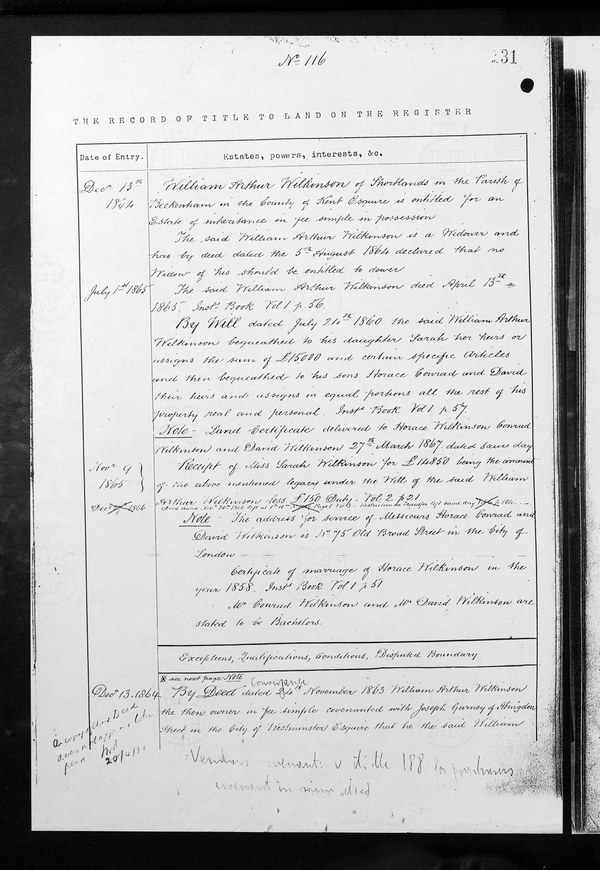 No 116
31
THE RECORD OF TITLE TO LAND ON THE REGISTER
Date of Entry.
Estates, powers, interests, &c.
Decr 13th
1864
William Arthur Wilkinson of Shortlands in the Parish of
Beckenham in the County of Kent Esquire is entitled for an
Estate of inheritance in fee simple in possession
The said William Arthur Wilkinson is a Widower and
has by deed dated the 5th August 1864 declared that no
Widow of his should be entitled to dower
July 1st 1865
The said William Arthur Wilkinson died April 13th
1865. Instt Book Vol 1 p. 56.
By Will dated July 24th 1860 the said William Arthur
Wilkinson bequeathed to his daughter Sarah her heirs or
assigns the sum of £15000 and certain specific Articles
and then bequeathed to his sons Horace Conrad and David
their heirs and assigns in equal portions all the rest of his
property real and personal. Instt Book Vol 1 p. 57.
Note - Land Certificate delivered to Horace Wilkinson Conrad
Wilkinson and David Wilkinson 27th March 1867 dated same day
Novr 9
1865
Receipt of Miss Sarah Wilkinson for £14850 being the amount
of the above mentioned legacy under the Will of the said William
Arthur Wilkinson less £150 Duty. Vol 2 p 21
1866
Note - The address for service of Messieurs Horace Conrad and
David Wilkinson is No 75 Old Broad Street in the City of
London
Certificate of marriage of Horace Wilkinson in the
year 1858. Instt Book Vol 1 p 51
Mr Conrad Wilkinson and Mr David Wilkinson are
stated to be Bachelors.
Exceptions, Qualifications, Conditions, Disputed Boundary
* see next page Note
Conveyance
Decr 13. 1864
By Deed dated 24th November 1863 William Arthur Wilkinson
the then owner in fee simple covenanted with Joseph Gurney of Abingdon
Street in the City of Westminster Esquire that he the said William
title 188 for purchasers
covenant in same deed